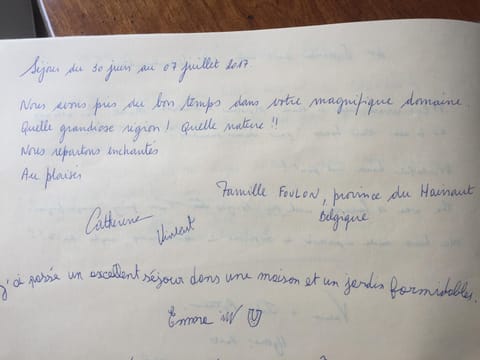 Séjour du 30 juin au 07 juillet 2017
Nous avons pris du bon temps dans votre magnifique domaine.
Quelle grandiose région ! Quelle nature !!
Nous repartons enchantés
Au plaisir
Famille FOULON, province du Hainaut
Belgique
Catherine
Vincent
J'ai passée un excellent séjour dans une maison et un jardin formidables.